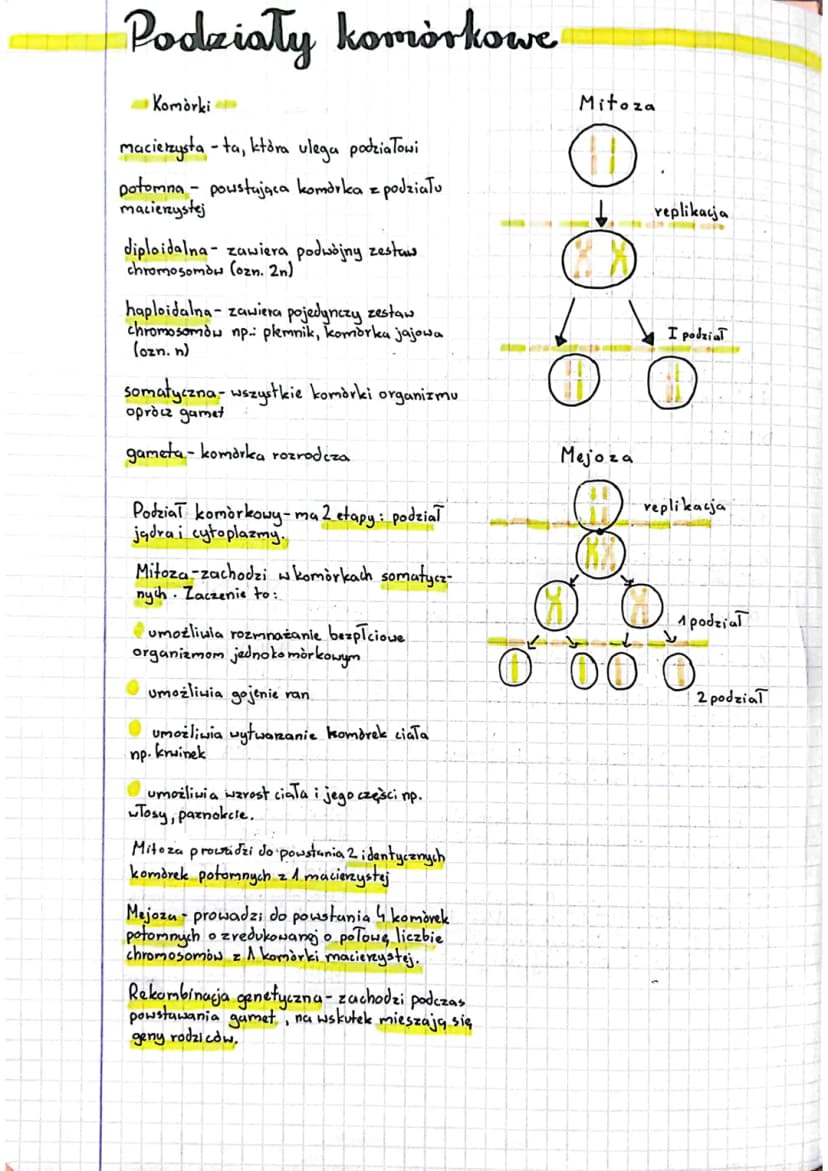 Podziały komórkowe
Komórki
macierzysta - ta, która ulega podziałowi
potomna - powstująca komórka z podziału
macierzystej
diploidalna - zawiera podwójny zestaw
chromosomów (ozn. 2n)
haploidalna - zawiera pojedynczy zestaw
chromosomów np.: plemnik, komórka jajowa
(ozn. n)
somatyczna - wszystkie komórki organizmu
oprócz gamet
gameta - komórka rozrodcza
Podział komórkowy - ma 2 etapy: podział
jądra i cytoplazmy.
Mitoza - zachodzi w komórkach somatycz-
nych. Zaczenie to:
umożliwia rozmnażanie bezpłciowe
organizmom jednokomórkowym
umożliwia gojenie ran
umożliwia wytwarzanie komórek ciała
np. krwinek
umożliwia wzrost ciała i jego części np.
włosy, paznokcie.
Mitoza prowadzi do powstania 2 identycznych
komórek potomnych z 1 macierzystej
Mejoza - prowadzi do powstania 4 komórek
potomnych o zredukowanej o połowę liczbie
chromosomów z 1 komórki macierzystej.
Rekombinacja genetyczna - zachodzi podczas
powstawania gamet, na wskutek mieszają się
geny rodziców.
Mitoza
replikacja
I podział
Mejoza
replikacja
1 podział
2 podział